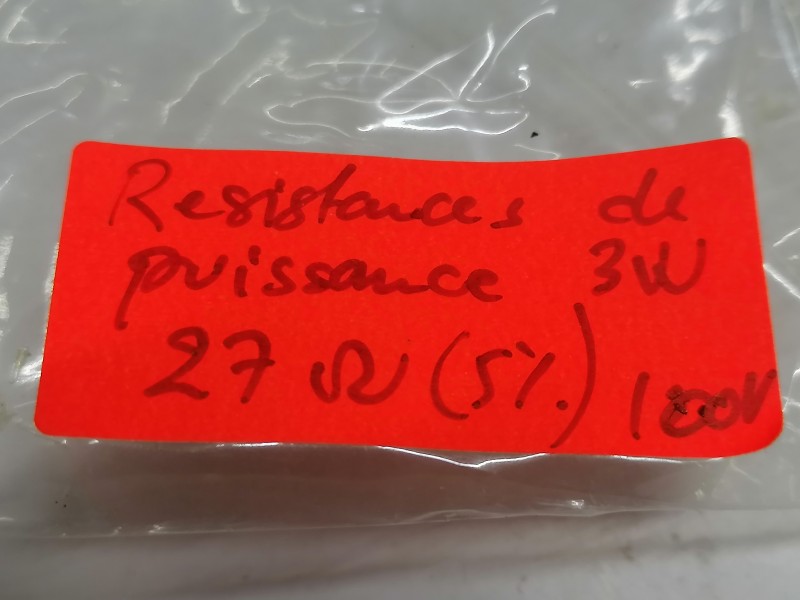 Resistances de
puissance 3W
27 Ω (5%)